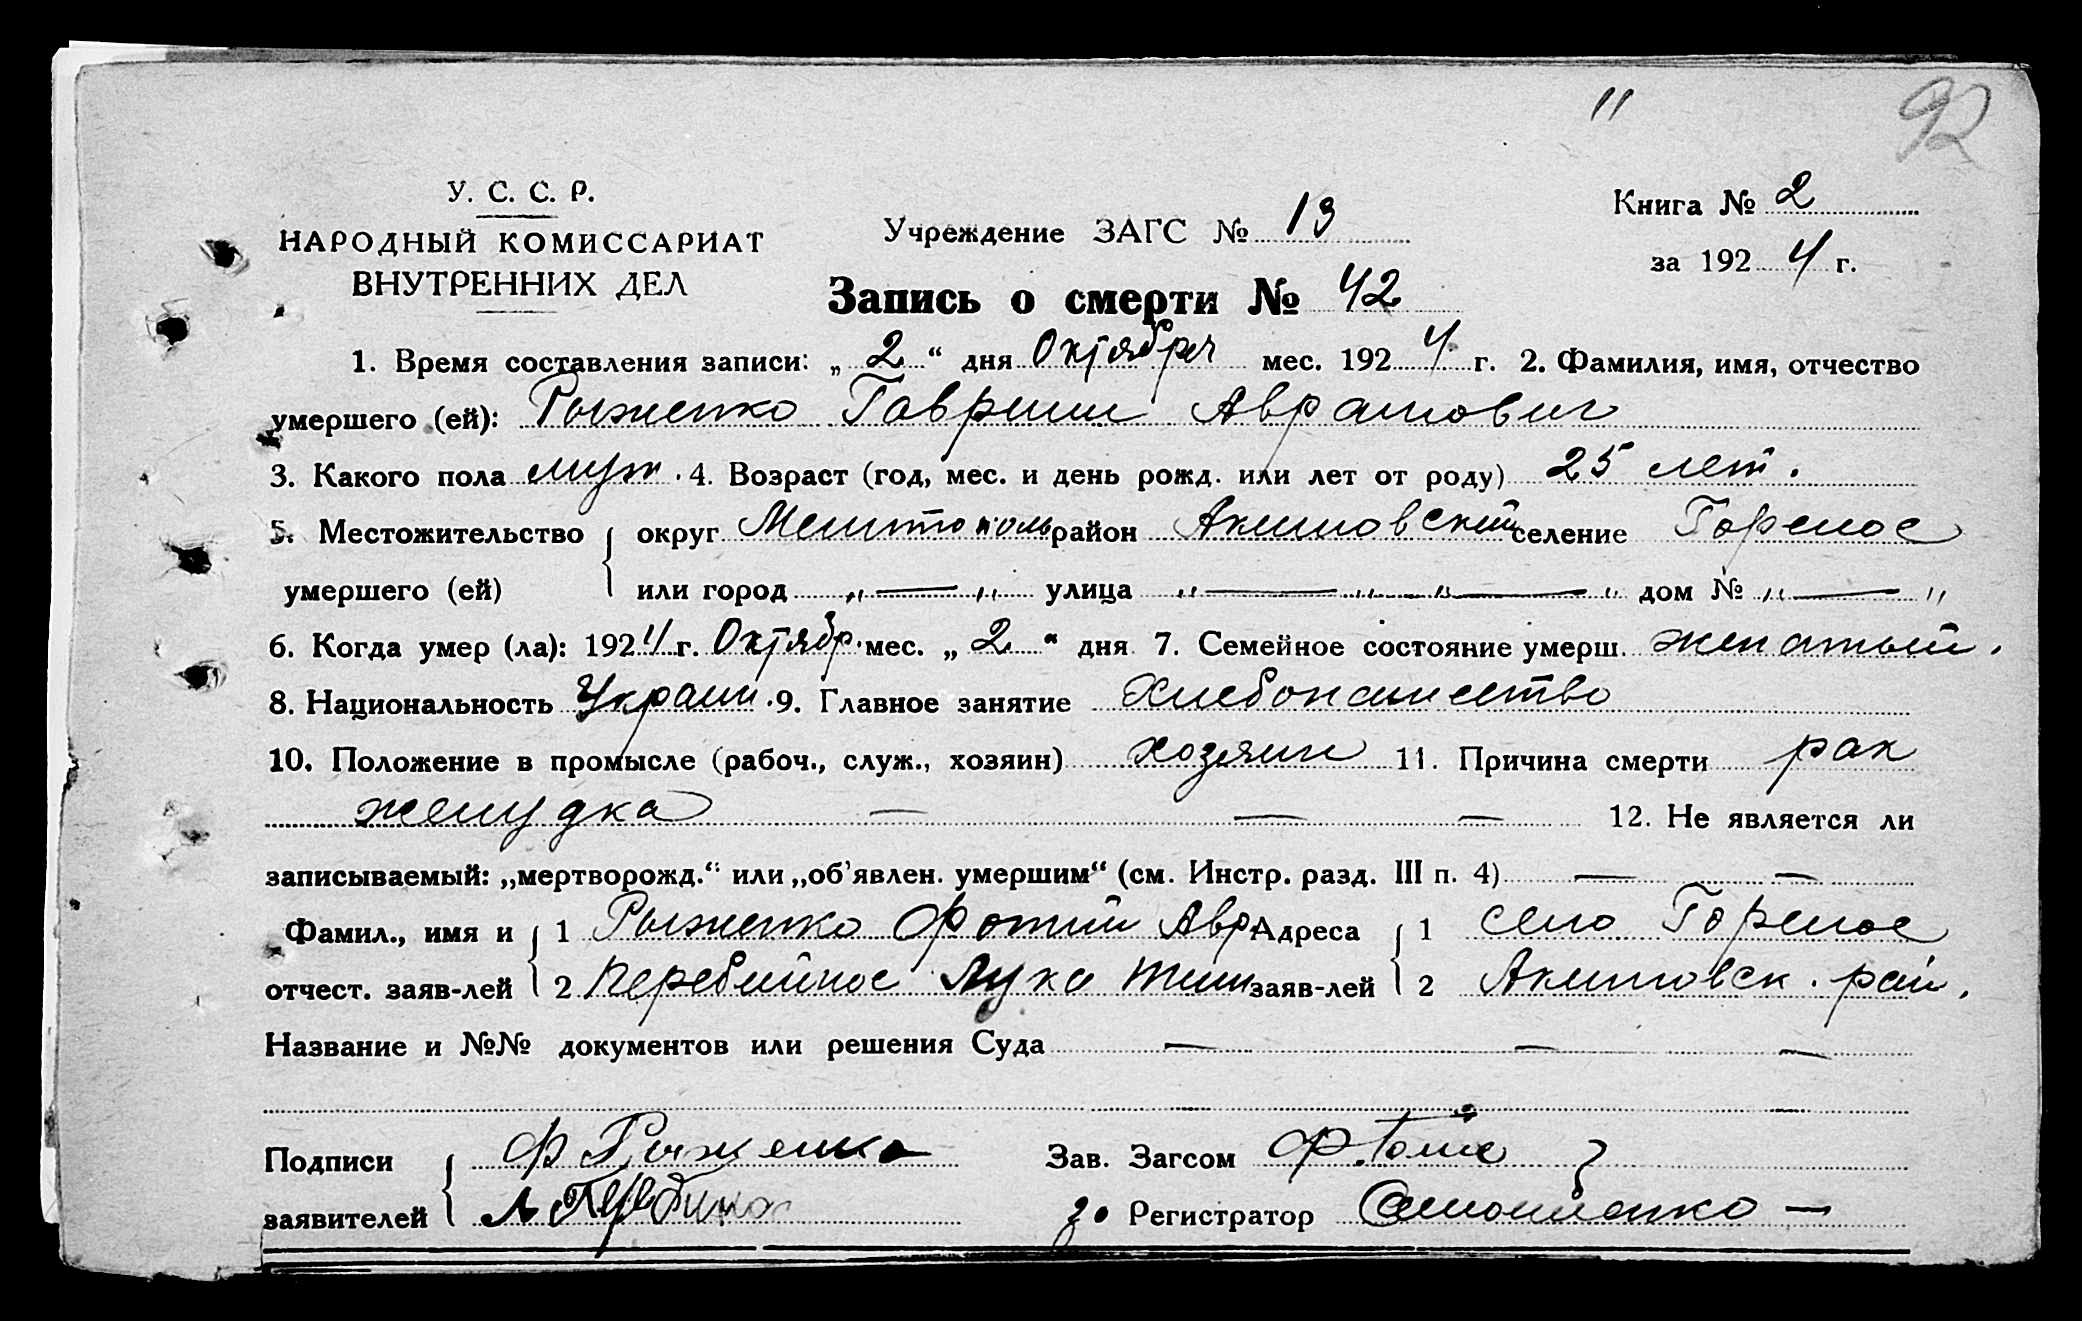 11
92
У. С. С. Р.
НАРОДНЫЙ КОМИССАРИАТ
ВНУТРЕННИХ ДЕЛ
Учреждение ЗАГС № 13
Книга № 2
за 1924 г.
Запись о смерти № 42
1. Время составления записи: „2“ дня Октября мес. 1924 г. 2. Фамилия, имя, отчество
умершего (ей): Рыженко Гавриил Аврамович
3. Какого пола муж. 4. Возраст (год, мес. и день рожд. или лет от роду) 25 лет.
5. Местожительство округ Мелитополь район Акимовский селение Горелое
умершего (ей) или город „ — „ улица „ — „ „ — „ дом № „ — „
6. Когда умер (ла): 1924 г. Октябр. мес. „2“ дня 7. Семейное состояние умерш. женатый.
8. Национальность Украин. 9. Главное занятие Хлебопашество
10. Положение в промысле (рабоч., служ., хозяин) хозяин 11. Причина смерти рак
желудка — — — 12. Не является ли
записываемый: „мертворожд.“ или „об'явлен. умершим“ (см. Инстр. разд. III п. 4) — —
Фамил., имя и 1 Рыженко Фотий Авр. Адреса 1 село Горелое
отчест. заяв-лей 2 Перебийнос Лука Тим заяв-лей 2 Акимовск. рай.
Название и №№ документов или решения Суда — — —
Подписи Ф Рыженко Зав. Загсом
заявителей Л Регистратор